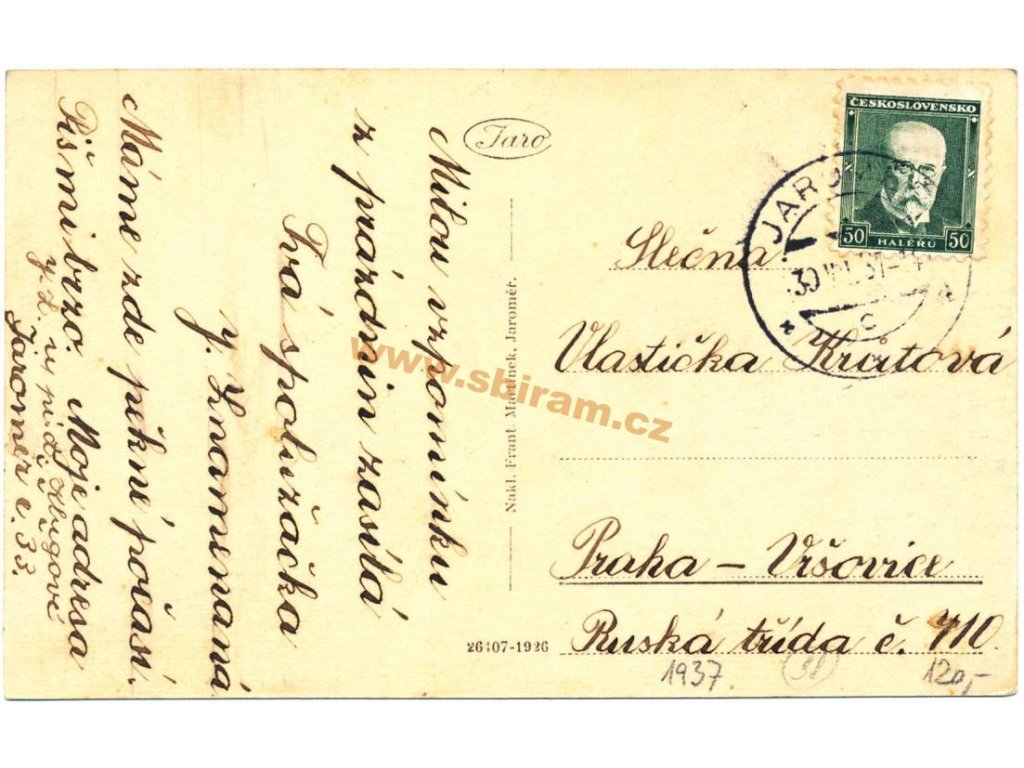 Milou vzpomínku
z prázdnin zasílá
Tvá spolužačka
J. Znamenaná
Máme zde pěkné počasí.
Piš mi brzo. Moje adresa
Jaroměř č. 33.
Jaro
Nakl. Frant. Martinek, Jaroměř.
26407-1926
ČESKOSLOVENSKO
50 HALÉŘŮ 50
Slečna
Vlastička Krutová
Praha - Vršovice
Ruská třída č. 710.
1937
120,-
www.sbiram.cz